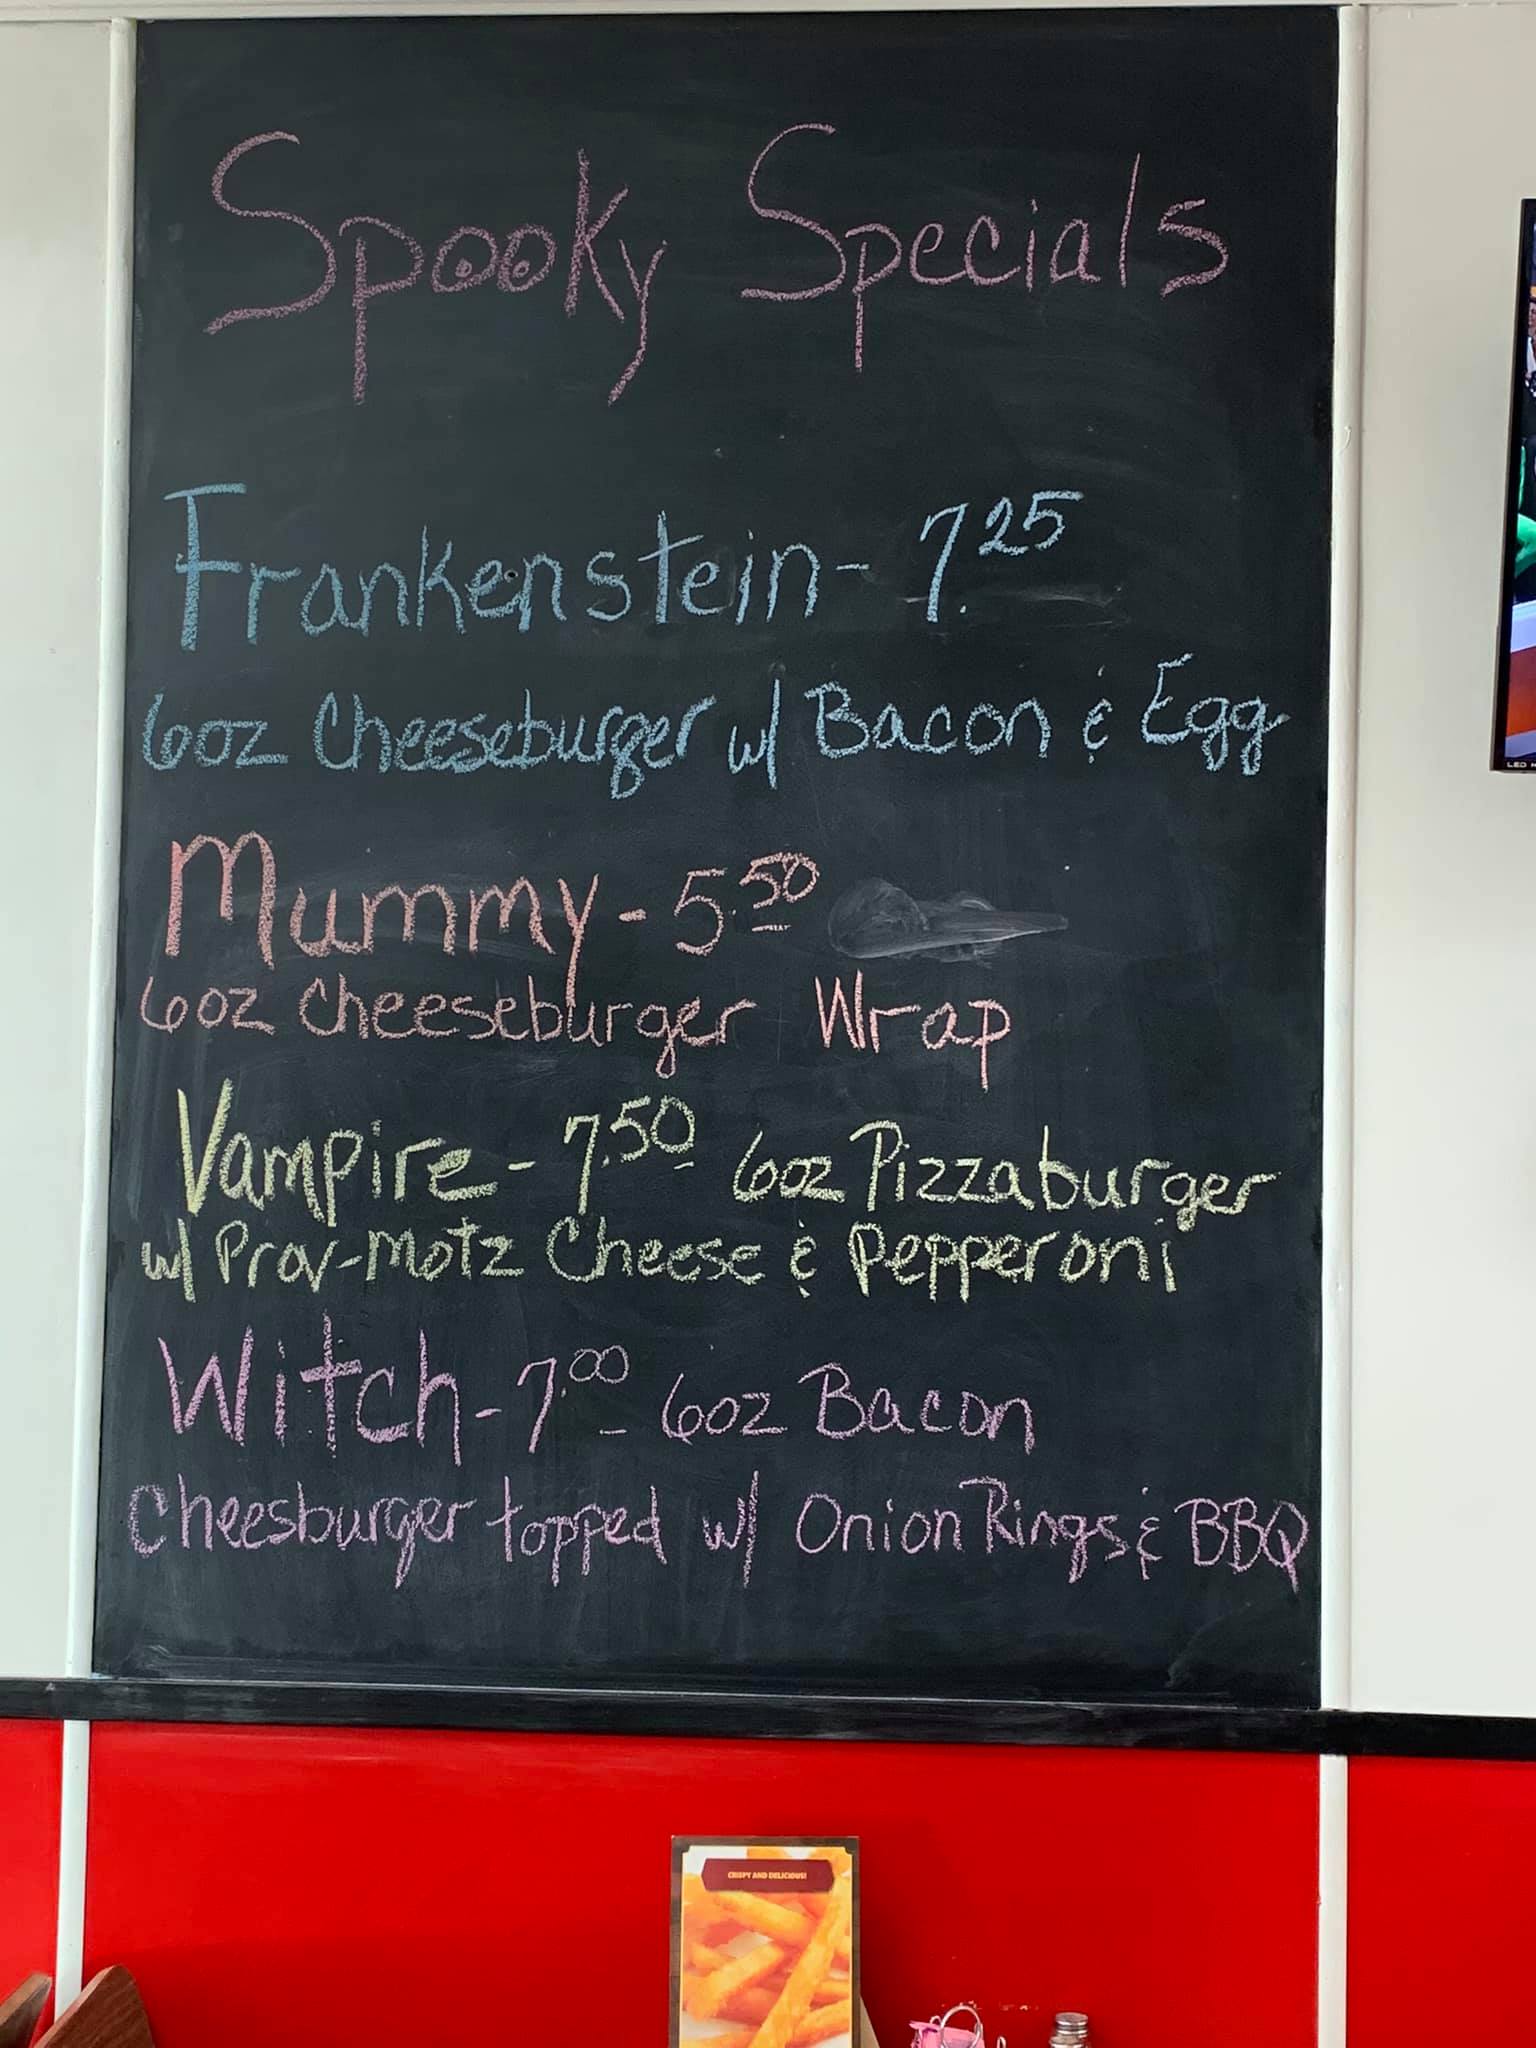 Spooky Specials
Frankenstein - 7.25
6oz Cheeseburger w/ Bacon & Egg
Mummy - 5.50
6oz Cheeseburger Wrap
Vampire - 7.50 6oz Pizzaburger
w/ Prov-Motz Cheese & Pepperoni
Witch - 7.00 6oz Bacon
Cheesburger topped w/ Onion Rings & BBQ
LED
CRISPY AND DELICIOUS!